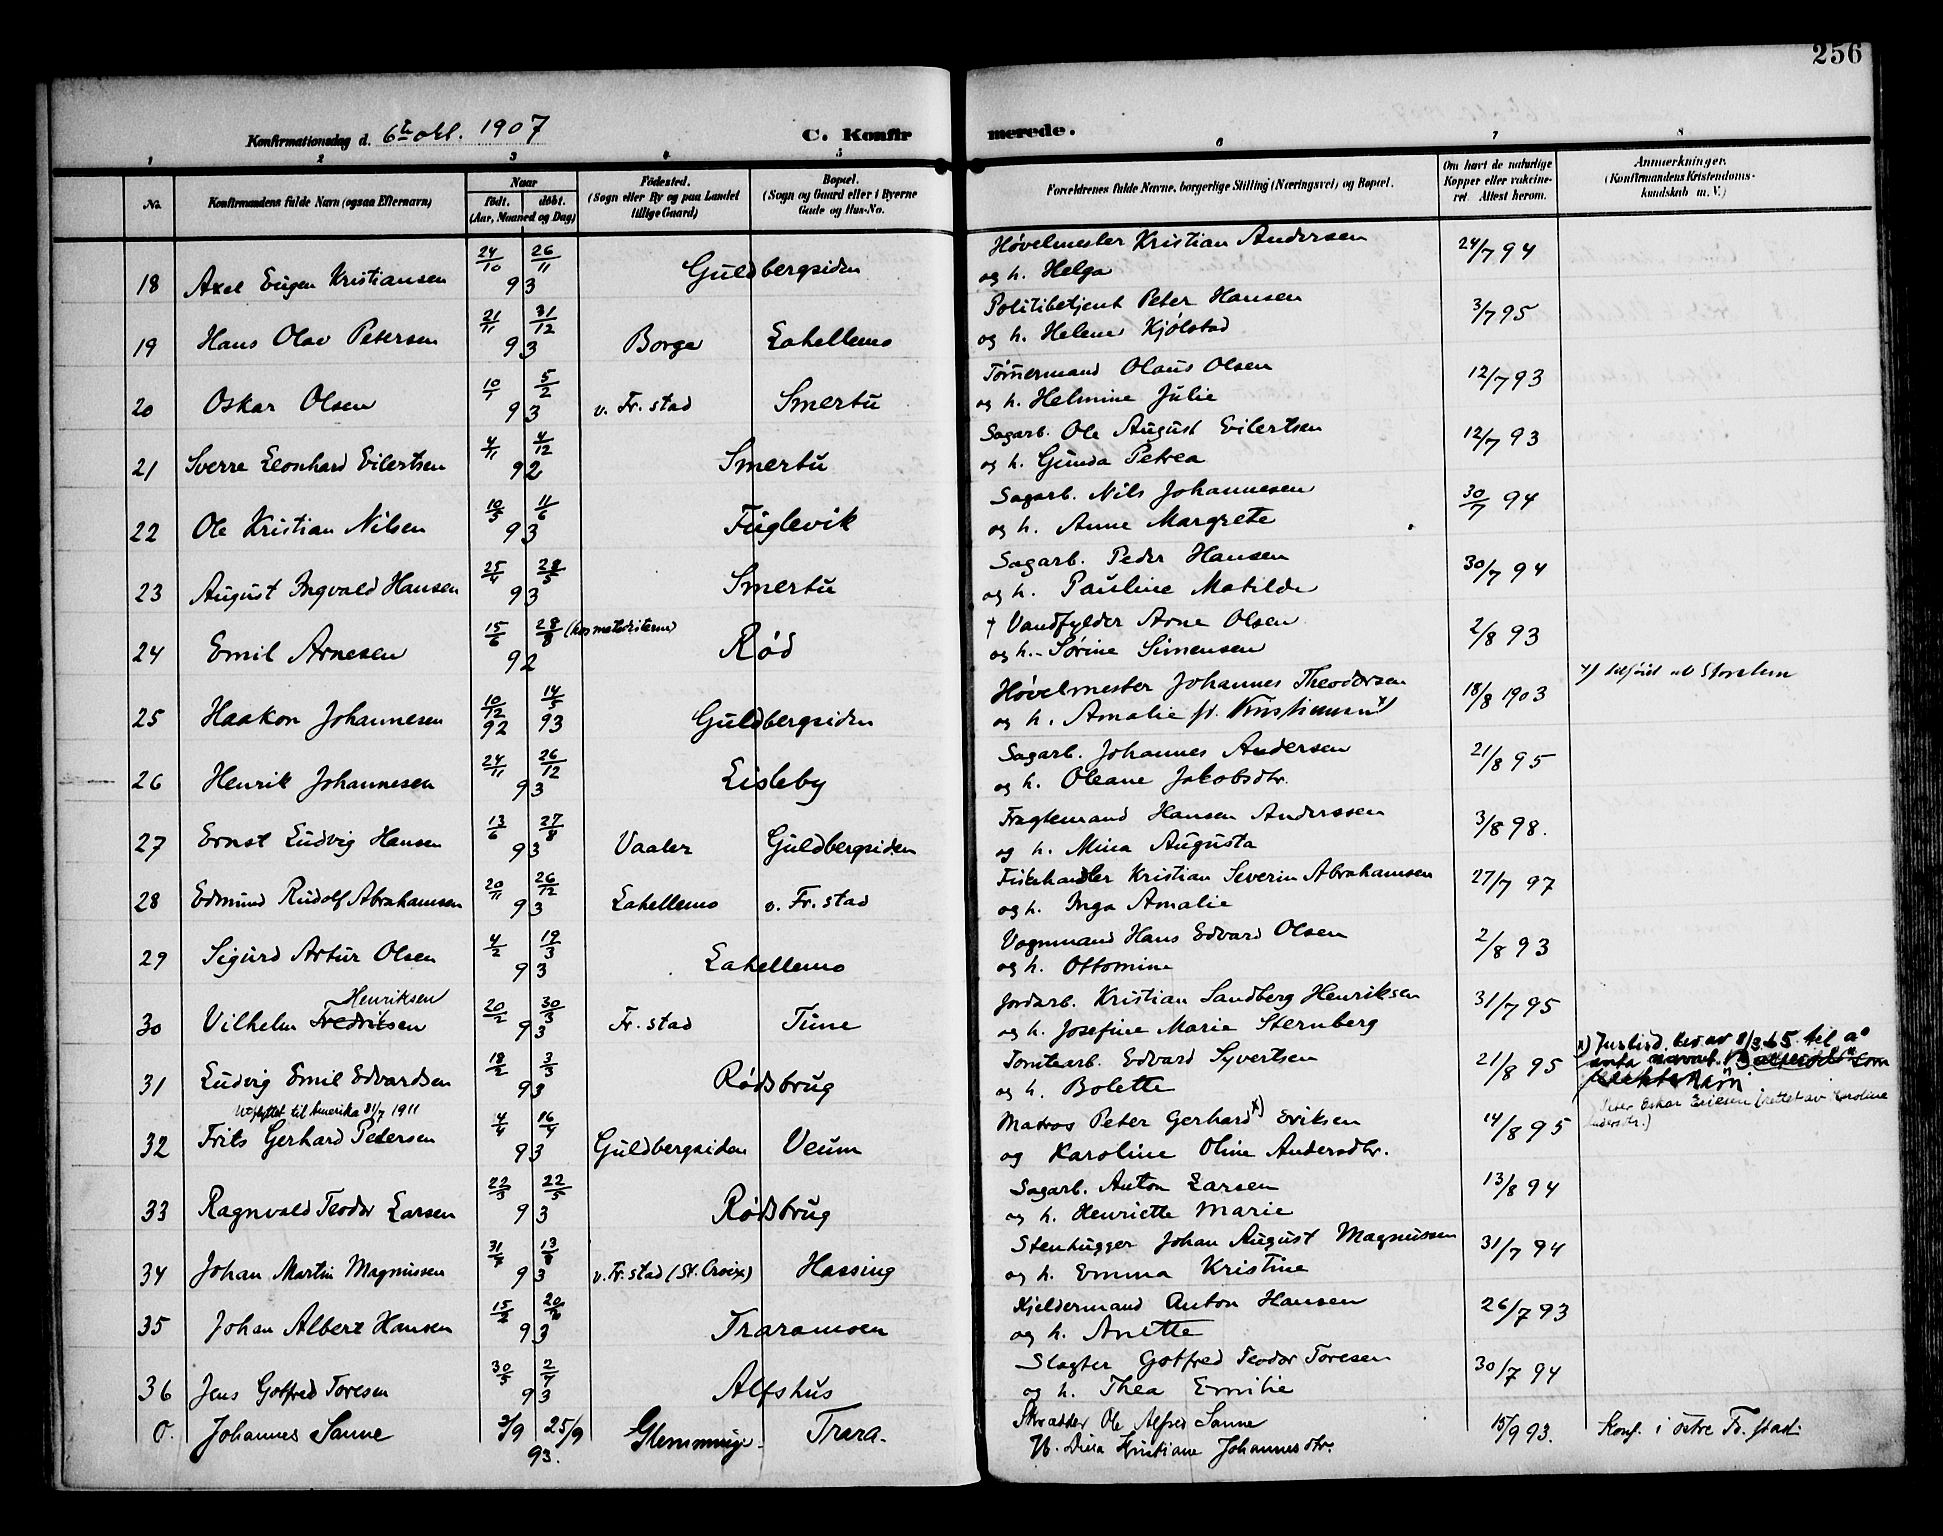 256
Konfirmationsdag d. 6te okt. 1907 C. Konfirmerede.
1 2 3 4 5 6 7 8
No. Konfirmandens fulde Navn (ogsaa Efternavn) Naar født. døbt. (Aar, Maaned og Dag) Fødested. (Sogn eller By og paa Landet tillige Gaard) Bopæl. (Sogn og Gaard eller i Byerne Gade og Hus-No. Forældrenes fulde Navne, borgerlige Stilling (Næringsvei) og Bopæl. Om havt de naturlige Kopper eller vakcineret. Attest herom. Anmærkninger. (Konfirmandens Kristendomskundskab m. V.)
18 Axel Eugen Kristiansen 24/10 26/11 93 Guldbergsiden Høvelmester Kristian Andersen 24/7 94
og h. Helga
19 Hans Olav Petersen 21/11 31/12 93 Borge Lahellemo Politibetjent Peter Hansen 3/7 95
og h. Helene Kjølstad
20 Oskar Olsen 10/1 5/2 93 v. Fr.stad Smertu Tømmermand Olaus Olsen 12/7 93
og h. Helmine Julie
21 Sverre Leonhard Eilertsen 4/11 4/12 92 Smertu Sagarb. Ole August Eilertsen 12/7 93
og h. Gunda Petrea
22 Ole Kristian Nilsen 10/5 11/6 93 Fuglevik Sagarb. Nils Johannesen 30/7 94
og h. Anne Margrete
23 August Ingvald Hansen 25/4 28/5 93 Smertu Sagarb. Peder Hansen 30/7 94
og h. Pauline Matilde
24 Emil Arnesen 15/6 28/8 (hos metodisterne) 92 Rød † Vandfylder Arne Olsen 2/8 93
og h. Sørine Simensen
25 Haakon Johannesen 10/12 92 14/5 93 Guldbergsiden Høvelmester Johannes Theodorsen 18/8 1903 x) tilføiet
og h. Amalie f. Kristiansen x)
26 Henrik Johannesen 24/11 26/12 93 Lisleby Sagarb. Johannes Andersen 21/8 95
og h. Oleane Jakobsdtr.
27 Ernst Ludvig Hansen 13/6 27/8 93 Vaaler Guldbergsiden Fragtemand Hansen Anderssen 3/8 98.
og h. Mina Augusta
28 Edmund Rudolf Abrahamsen 20/11 26/12 93 Lahellemo v. Fr.stad Fiskehandler Kristian Severin Abrahamsen 27/7 97
og h. Inga Amalie
29 Sigurd Artur Olsen 4/2 19/3 93 Lahellemo Vognmand Hans Edvard Olsen 2/8 93
og h. Ottomine
Henriksen
30 Vilhelm Fredriksen 20/2 30/3 93 Fr.stad Tune Jordarb. Kristian Sandberg Henriksen 31/7 95
og h. Josefine Marie Sternberg
31 Ludvig Emil Edvardsen 18/2 3/3 93 Rødsbrug Tomtearb. Edvard Syvertsen 21/8 95 x) Justisd. bev av 8/3 65 til å
og h. Bolette anta navnet som
Utflyttet til Amerika 31/7 1911 slektsnavn
32 Frits Gerhard Petersen 4/4 16/4 93 Guldbergsiden Veum Matros Peter Gerhard x) Eriksen 14/8 95 Peter Oskar Eriksen (rettet av Karoline
og Karoline Oline Andersdtr. Andersdtr.)
33 Ragnvald Teodor Larsen 22/3 22/5 93 Rødsbrug Sagarb. Anton Larsen 13/8 94
og h. Henriette Marie
34 Johan Martin Magnussen 31/7 13/8 93 v. Fr.stad (St. Croix) Hassing Stenhugger Johan August Magnussen 31/7 94
og h. Emma Kristine
35 Johan Albert Hansen 93 Traramoen Kjeldermand Anton Hansen 26/7 93
og h. Anette
36 Jens Gotfred Toresen 30/3 93 Alfshus Slagter Gotfred Teodor Toresen 30/7 94
og h. Thea Emilie
0. Johannes Sanne 3/9 25/9 93. Glemminge. Trara. Skrædder Ole Alfred Sanne 15/9 93. Konf. i østre Fr.stad.
H. Dina Kristiane Johannesdtr.